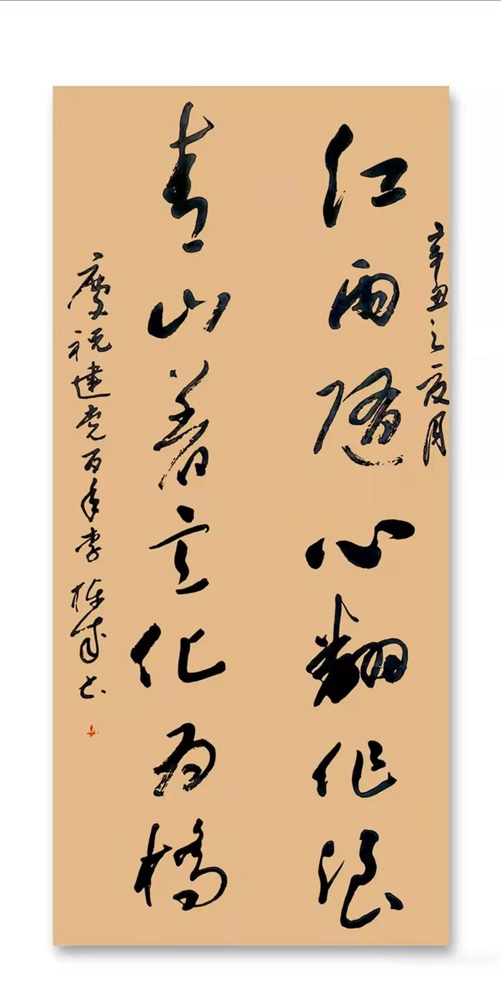 辛丑之夏月
红雨隨心翻作浪
青山着意化为橋
慶祝建党百年李成书